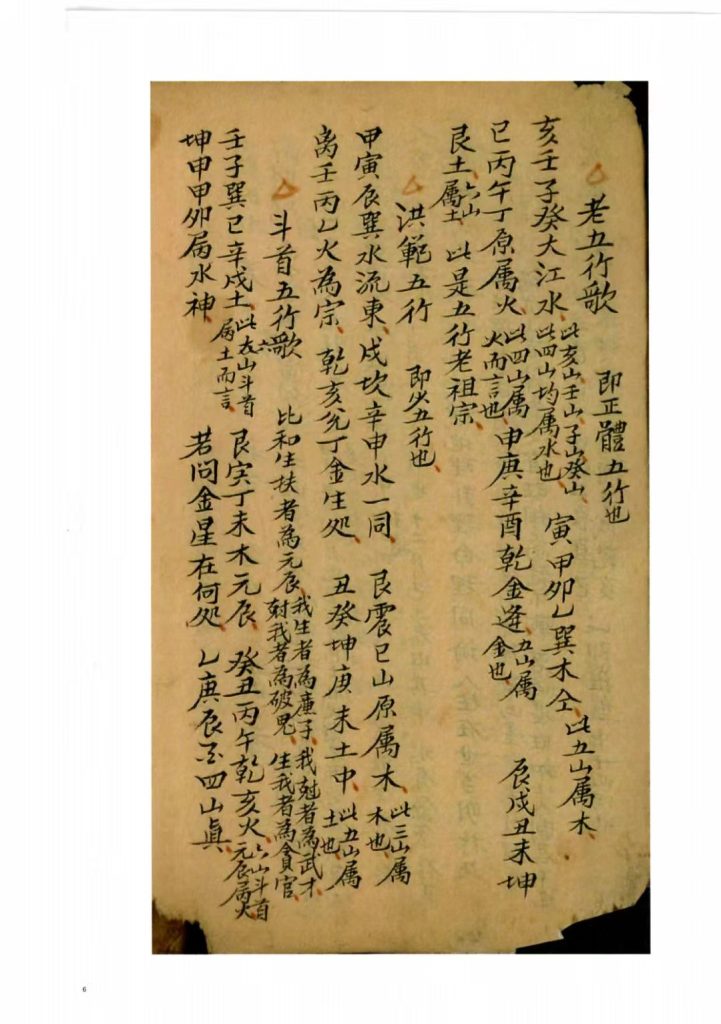 老五行歌 即正體五行也
亥壬子癸大江水 此亥山壬山子山癸山此四山均属水也 寅甲卯乙巽木仝 此五山属木
巳丙午丁原属火 此四山属火而言也 申庚辛酉乾金逢 五山属金也 辰戌丑未坤
艮土属土 六山 此是五行老祖宗
洪範五行 即火五行也
甲寅辰巽水流東 戌坎辛申水一同 艮震巳山原属木 此三山属木也
离壬丙乙火為宗 乾亥兊丁金生処 丑癸坤庚未土中 此五山属土也
斗首五行歌 比和生扶者為元辰 我生者為廉子我尅者為武才 尅我者為破鬼生我者為貪官
壬子巽巳辛戌土 此六山斗首属土而言 艮寅丁未木元辰 癸丑丙午乾亥火 六山斗首元辰属火
坤申甲卯属水神 若问金星在何処 乙庚辰酉四山真
6